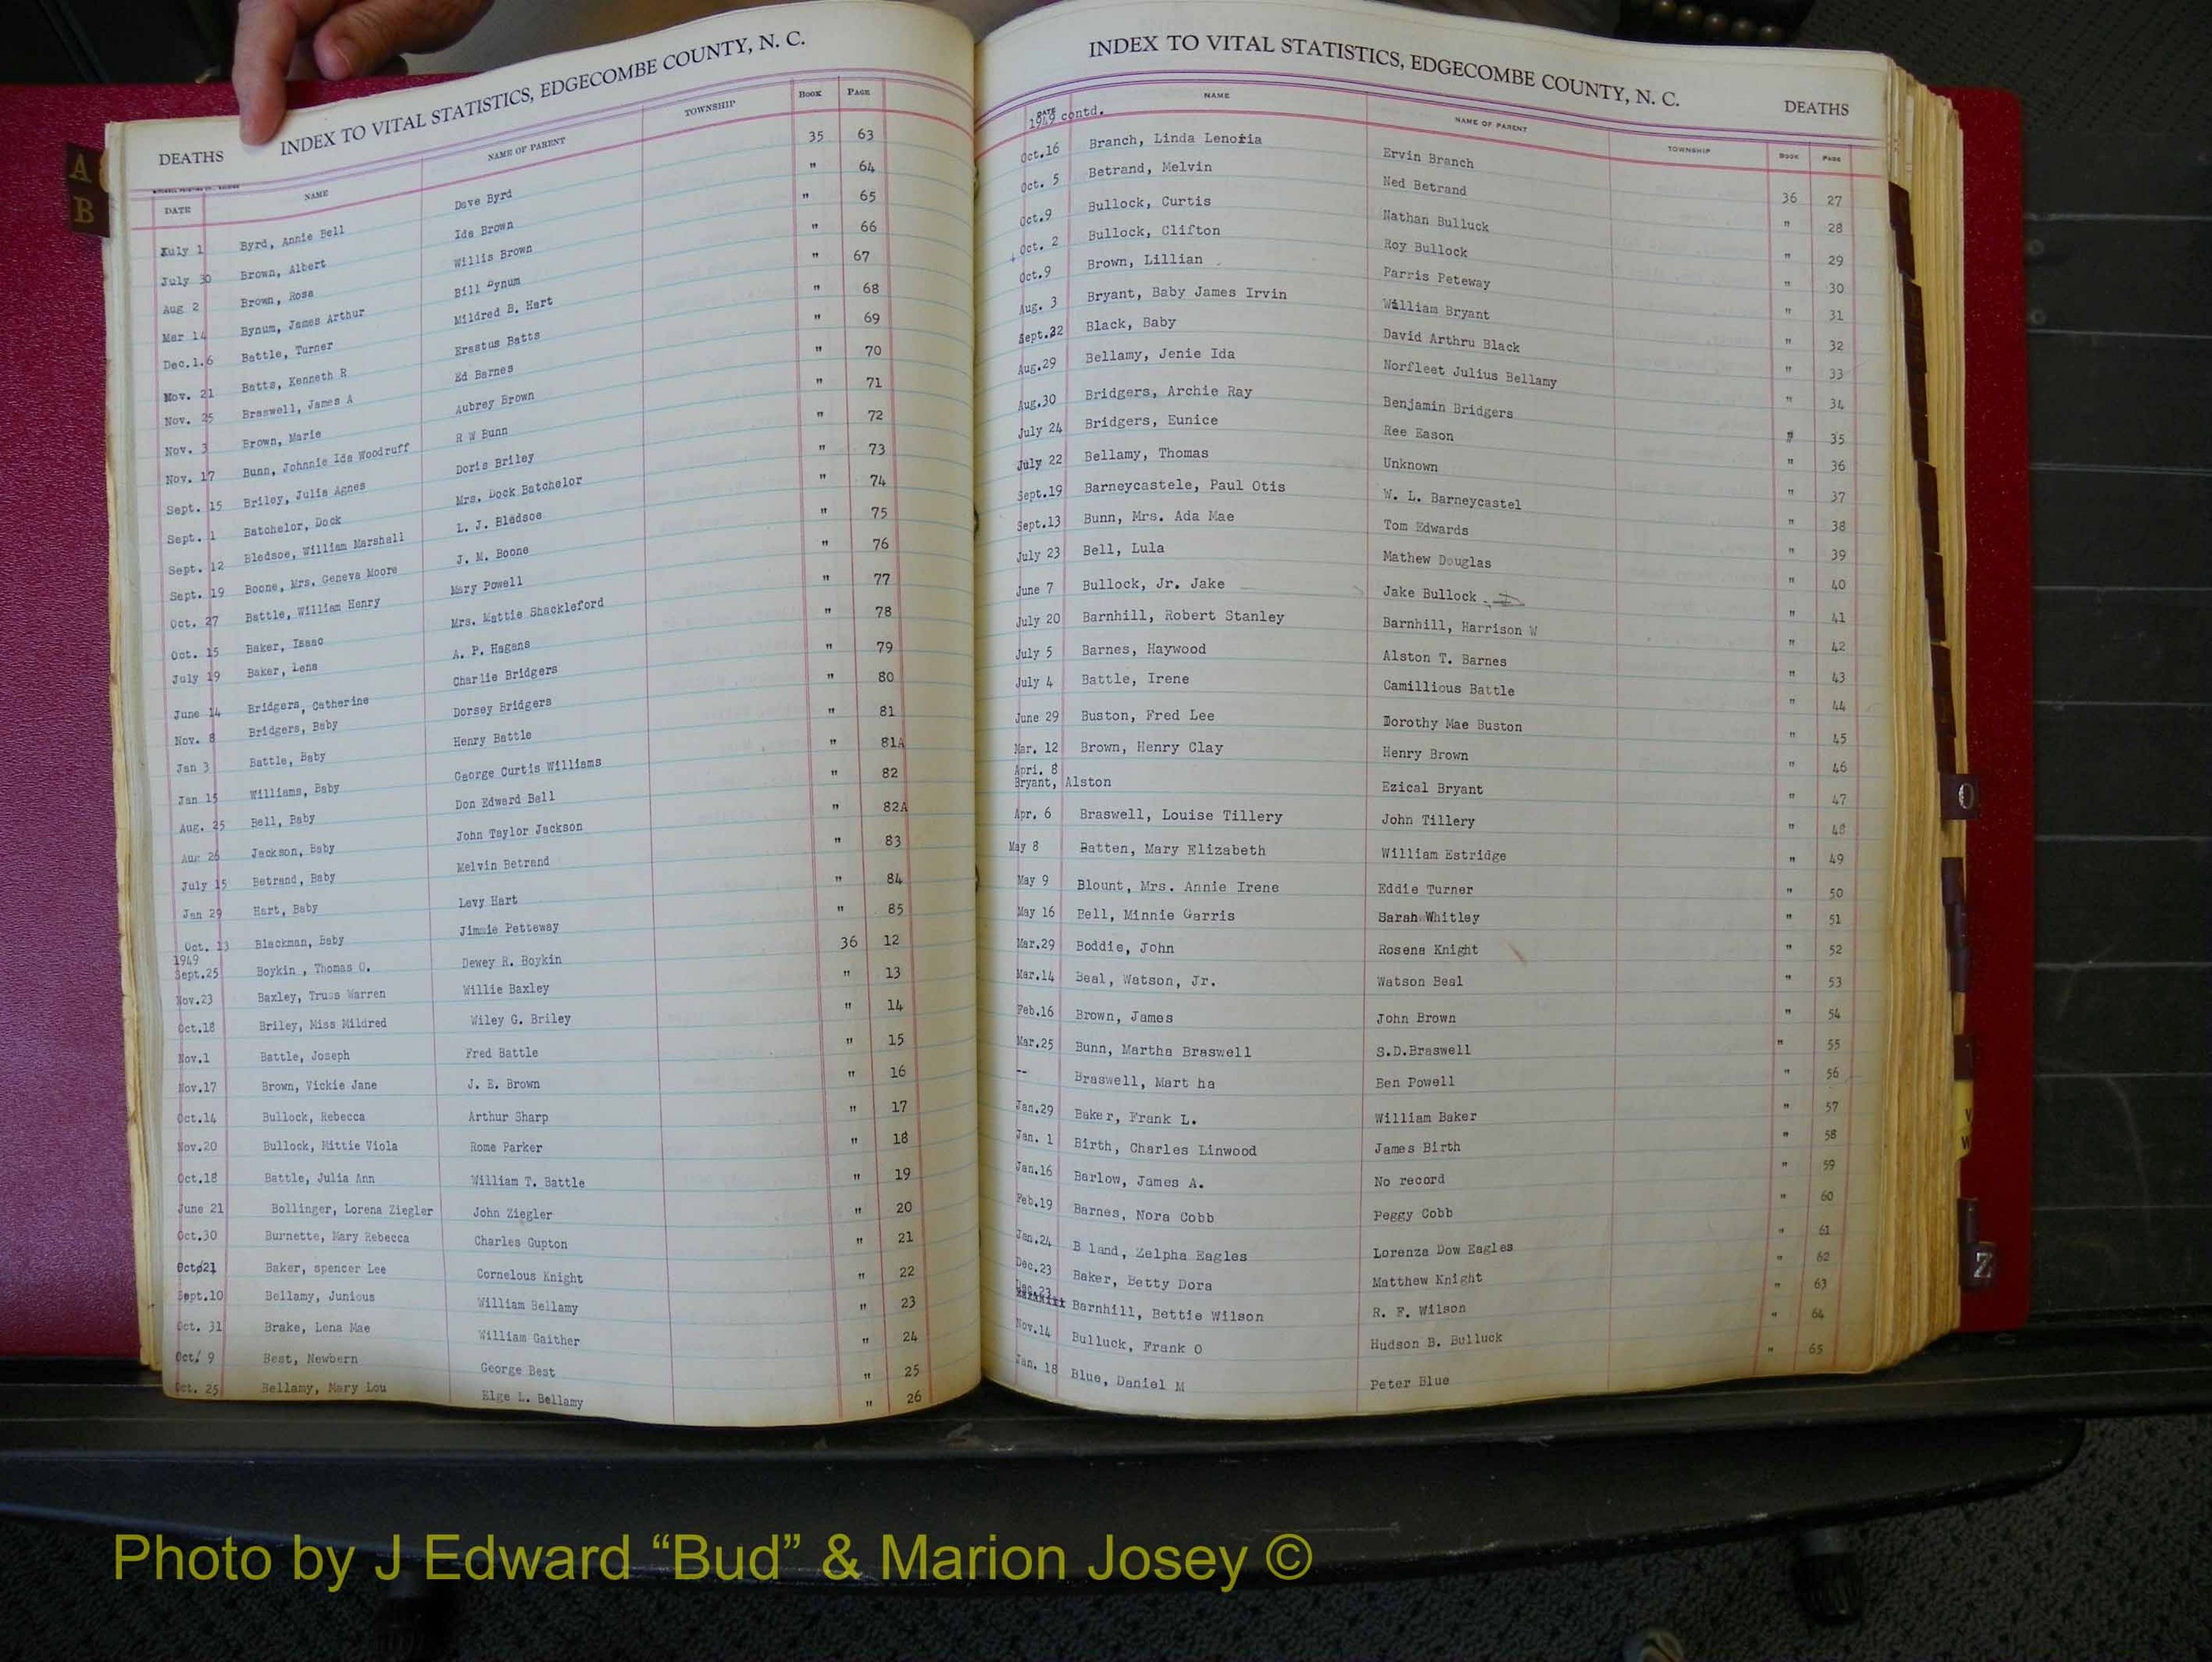 INDEX TO VITAL STATISTICS, EDGECOMBE COUNTY, N. C.
DEATHS
DATE NAME NAME OF PARENT TOWNSHIP BOOK PAGE
July 1 Byrd, Annie Bell Dave Byrd 35 63
July 30 Brown, Albert Ida Brown " 64
Aug 2 Brown, Rosa Willis Brown " 65
Mar 14 Bynum, James Arthur Bill Bynum " 66
Dec.1.6 Battle, Turner Mildred B. Hart " 67
Nov. 21 Batts, Kenneth R Erastus Batts " 68
Nov. 25 Braswell, James A Ed Barnes " 69
Nov. 3 Brown, Marie Aubrey Brown " 70
Nov. 17 Bunn, Johnnie Ida Woodruff R W Bunn " 71
Sept. 15 Briley, Julia Agnes Doris Briley " 72
Sept. 1 Batchelor, Dock Mrs. Dock Batchelor " 73
Sept. 12 Bledsoe, William Marshall L. J. Bledsoe " 74
Sept. 19 Boone, Mrs. Geneva Moore J. M. Boone " 75
Oct. 27 Battle, William Henry Mary Powell " 76
Oct. 15 Baker, Isaac Mrs. Mattie Shackleford " 77
July 19 Baker, Lena A. P. Hagans " 78
June 14 Bridgers, Catherine Charlie Bridgers " 79
Nov. 8 Bridgers, Baby Dorsey Bridgers " 80
Jan 3 Battle, Baby Henry Battle " 81
Jan 15 Williams, Baby George Curtis Williams " 81A
Aug. 25 Bell, Baby Don Edward Bell " 82
Aug 26 Jackson, Baby John Taylor Jackson " 82A
July 15 Betrand, Baby Melvin Betrand " 83
Jan 29 Hart, Baby Levy Hart " 84
Oct. 13 Blackman, Baby Jimmie Petteway " 85
1949
Sept.25 Boykin , Thomas O. Dewey R. Boykin 36 12
Nov.23 Baxley, Truss Warren Willie Baxley " 13
Oct.18 Briley, Miss Mildred Wiley G. Briley " 14
Nov.1 Battle, Joseph Fred Battle " 15
Nov.17 Brown, Vickie Jane J. E. Brown " 16
Oct.14 Bullock, Rebecca Arthur Sharp " 17
Nov.20 Bullock, Mittie Viola Rome Parker " 18
Oct.18 Battle, Julia Ann William T. Battle " 19
June 21 Bollinger, Lorena Ziegler John Ziegler " 20
Oct.30 Burnette, Mary Rebecca Charles Gupton " 21
Oct 21 Baker, spencer Lee Cornelous Knight " 22
Sept.10 Bellamy, Junious William Bellamy " 23
Oct. 31 Brake, Lena Mae William Gaither " 24
Oct. 9 Best, Newbern George Best " 25
Oct. 25 Bellamy, Mary Lou Elge L. Bellamy " 26
INDEX TO VITAL STATISTICS, EDGECOMBE COUNTY, N. C.
DEATHS
DATE NAME NAME OF PARENT TOWNSHIP BOOK PAGE
1949 contd.
Oct.16 Branch, Linda Lenoria Ervin Branch 36 27
Oct. 5 Betrand, Melvin Ned Betrand " 28
Oct.9 Bullock, Curtis Nathan Bulluck " 29
Oct. 2 Bullock, Clifton Roy Bullock " 30
Oct.9 Brown, Lillian Parris Peteway " 31
Aug. 3 Bryant, Baby James Irvin William Bryant " 32
Sept.22 Black, Baby David Arthru Black " 33
Aug.29 Bellamy, Jenie Ida Norfleet Julius Bellamy " 34
Aug.30 Bridgers, Archie Ray Benjamin Bridgers " 35
July 24 Bridgers, Eunice Ree Eason " 36
July 22 Bellamy, Thomas Unknown " 37
Sept.19 Barneycastele, Paul Otis W. L. Barneycastel " 38
Sept.13 Bunn, Mrs. Ada Mae Tom Edwards " 39
July 23 Bell, Lula Mathew Douglas " 40
June 7 Bullock, Jr. Jake Jake Bullock " 41
July 20 Barnhill, Robert Stanley Barnhill, Harrison W " 42
July 5 Barnes, Haywood Alston T. Barnes " 43
July 4 Battle, Irene Camillious Battle " 44
June 29 Buston, Fred Lee Dorothy Mae Buston " 45
Mar. 12 Brown, Henry Clay Henry Brown " 46
Apri. 8
Bryant, Alston Ezical Bryant " 47
Apr. 6 Braswell, Louise Tillery John Tillery " 48
May 8 Batten, Mary Elizabeth William Estridge " 49
May 9 Blount, Mrs. Annie Irene Eddie Turner " 50
May 16 Bell, Minnie Garris Sarah Whitley " 51
Mar.29 Boddie, John Rosena Knight " 52
Mar.14 Beal, Watson, Jr. Watson Beal " 53
Feb.16 Brown, James John Brown " 54
Mar.25 Bunn, Martha Braswell S.D.Braswell " 55
-- Braswell, Mart ha Ben Powell " 56
Jan.29 Baker, Frank L. William Baker " 57
Jan. 1 Birth, Charles Linwood James Birth " 58
Jan.16 Barlow, James A. No record " 59
Feb.19 Barnes, Nora Cobb Peggy Cobb " 60
Jan.24 B land, Zelpha Eagles Lorenza Dow Eagles " 61
Dec.23 Baker, Betty Dora Matthew Knight " 62
Dec.23 Barnhill, Bettie Wilson R. F. Wilson " 63
Nov.14 Bulluck, Frank O Hudson B. Bulluck " 64
Jan. 18 Blue, Daniel M Peter Blue " 65
A
B
O
V
W
Z
Photo by J Edward “Bud” & Marion Josey ©